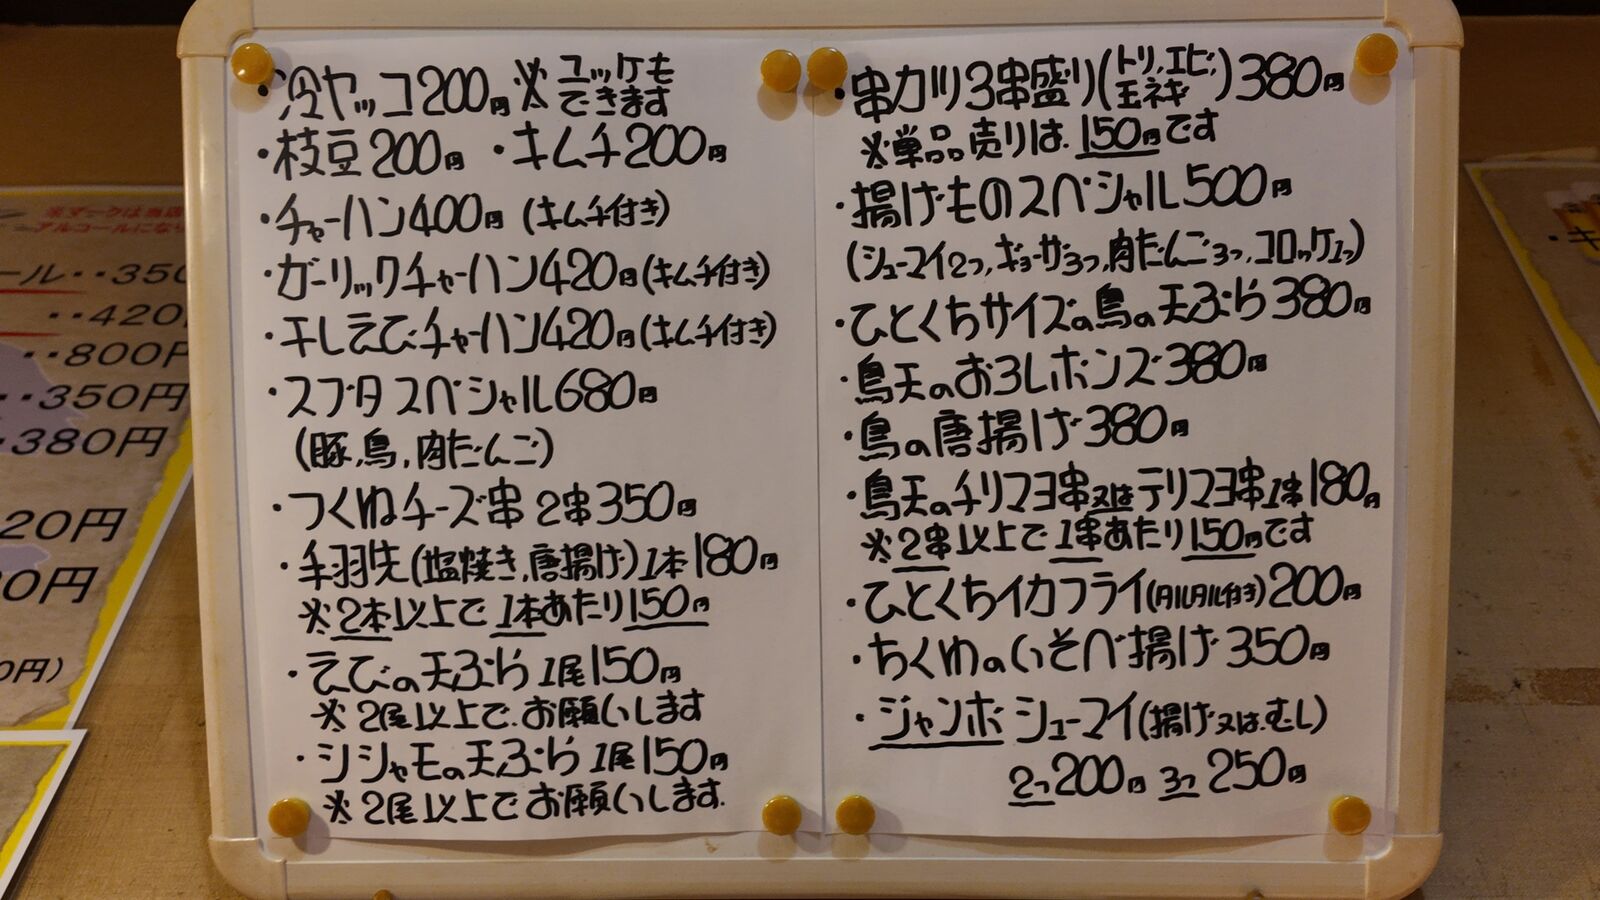 ・冷ヤッコ200円 ※ユッケもできます
・枝豆200円 ・キムチ200円
・チャーハン400円 (キムチ付き)
・ガーリックチャーハン420円(キムチ付き)
・干しえびチャーハン420円(キムチ付き)
・スブタスペシャル680円
(豚,鳥,肉だんご)
・つくねチーズ串 2串350円
・手羽先(塩焼き,唐揚げ)1本180円
※2本以上で1本あたり150円
・えびの天ぷら 1尾150円
※2尾以上でお願いします
・シシャモの天ぷら 1尾150円
※2尾以上でお願いします.
・串カツ3串盛り(トリ,エビ,玉ネギ)380円
※単品売りは.150円です
・揚げものスペシャル500円
(シューマイ2つ,ギョーザ3つ,肉だんご3つ,コロッケ1つ)
・ひとくちサイズの鳥の天ぷら380円
・鳥天のおろしポンズ380円
・鳥の唐揚げ380円
・鳥天のチリマヨ串又はテリマヨ串1串180円
※2串以上で1串あたり150円です
・ひとくちイカフライ(タルタル付き)200円
・ちくわのいそべ揚げ350円
・ジャンボシューマイ(揚げ又はむし)
2つ200円 3つ250円
ール・・350
・・420円
・・800円
・・350円
・380円
20円
0円
0円)